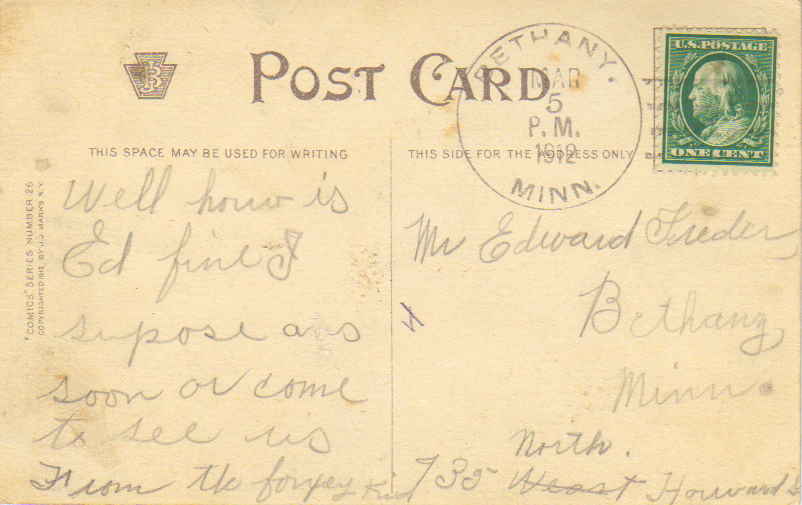 POST CARD
BETHANY.
MAR
5
P.M.
1912
MINN.
U.S. POSTAGE
ONE CENT
THIS SPACE MAY BE USED FOR WRITING
THIS SIDE FOR THE ADDRESS ONLY
"COMICS" SERIES NUMBER 26
COPYRIGHTED 1912, BY J. MARKS N.Y.
Well houw is
Ed fine I
supose ans
soon or come
to see us
From the
Mr Edward
Bethany
Minn.
North.
735 West Howard